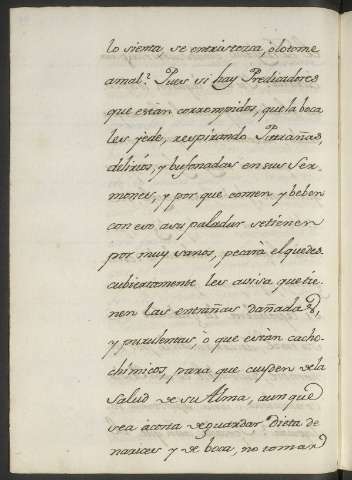 lo sienta, se entristezca, ólo tome
amal? Pues si hay Predicadores
que están corrompidos, que la boca
les yede, respirando Patrañas,
delirios, y bufonadas en sus Ser-
mones, y por que comen y beben
con eso a su paladar setienen
por muy sanos, pecará el quedes-
cubiertamente les avisa que tie-
nen las entrañas dañadas,
y purulentas, ò que están caco-
chimicos, para que cuyden dela
Salud de su Alma, aunque
sea ácosta deguardar Dieta de
narices y de boca, no tomar